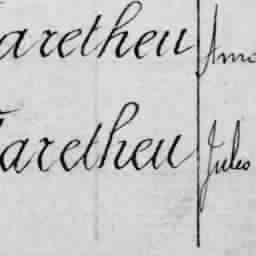 aretheu
aretheu Jules